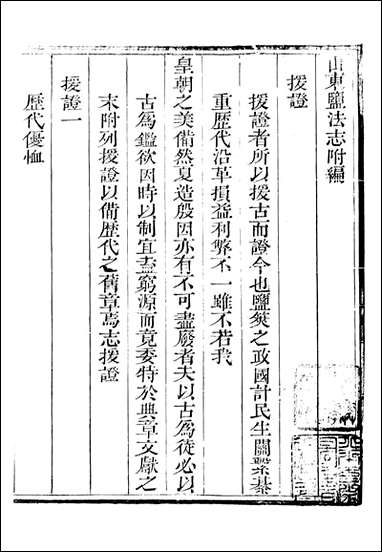 山東鹽法志附編
援證
援證者所以援古而證今也鹽筴之政國計民生關繫綦
重歷代沿革損益利弊不一雖不若我
皇朝之美備然夏造殷因亦有不可盡廢者夫以古為徒必以
古為鑑欲因時以制宜盍窮源而竟委特於典章文獻之
末附列援證以備歷代之舊章焉志援證
援證一
歷代優恤